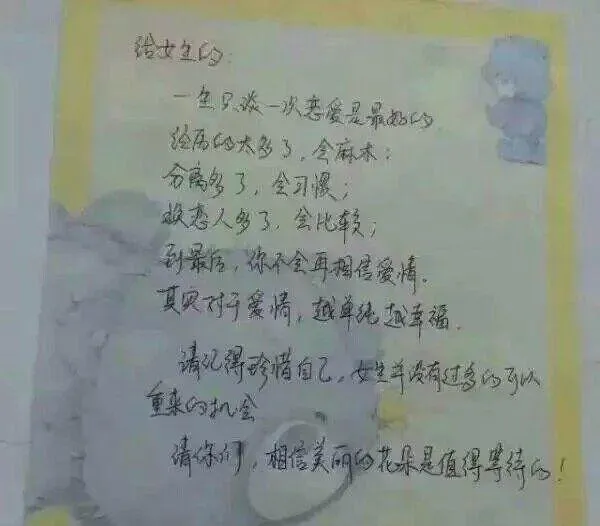 给女生的:
一生只谈一次恋爱是最好的
经历的太多了，会麻木；
分离多了，会习惯；
换恋人多了，会比较；
到最后，你不会再相信爱情.
其实对于爱情，越单纯越幸福.
请记得珍惜自己，女生并没有过多的可以
重来的机会
请你们，相信美丽的花朵是值得等待的！